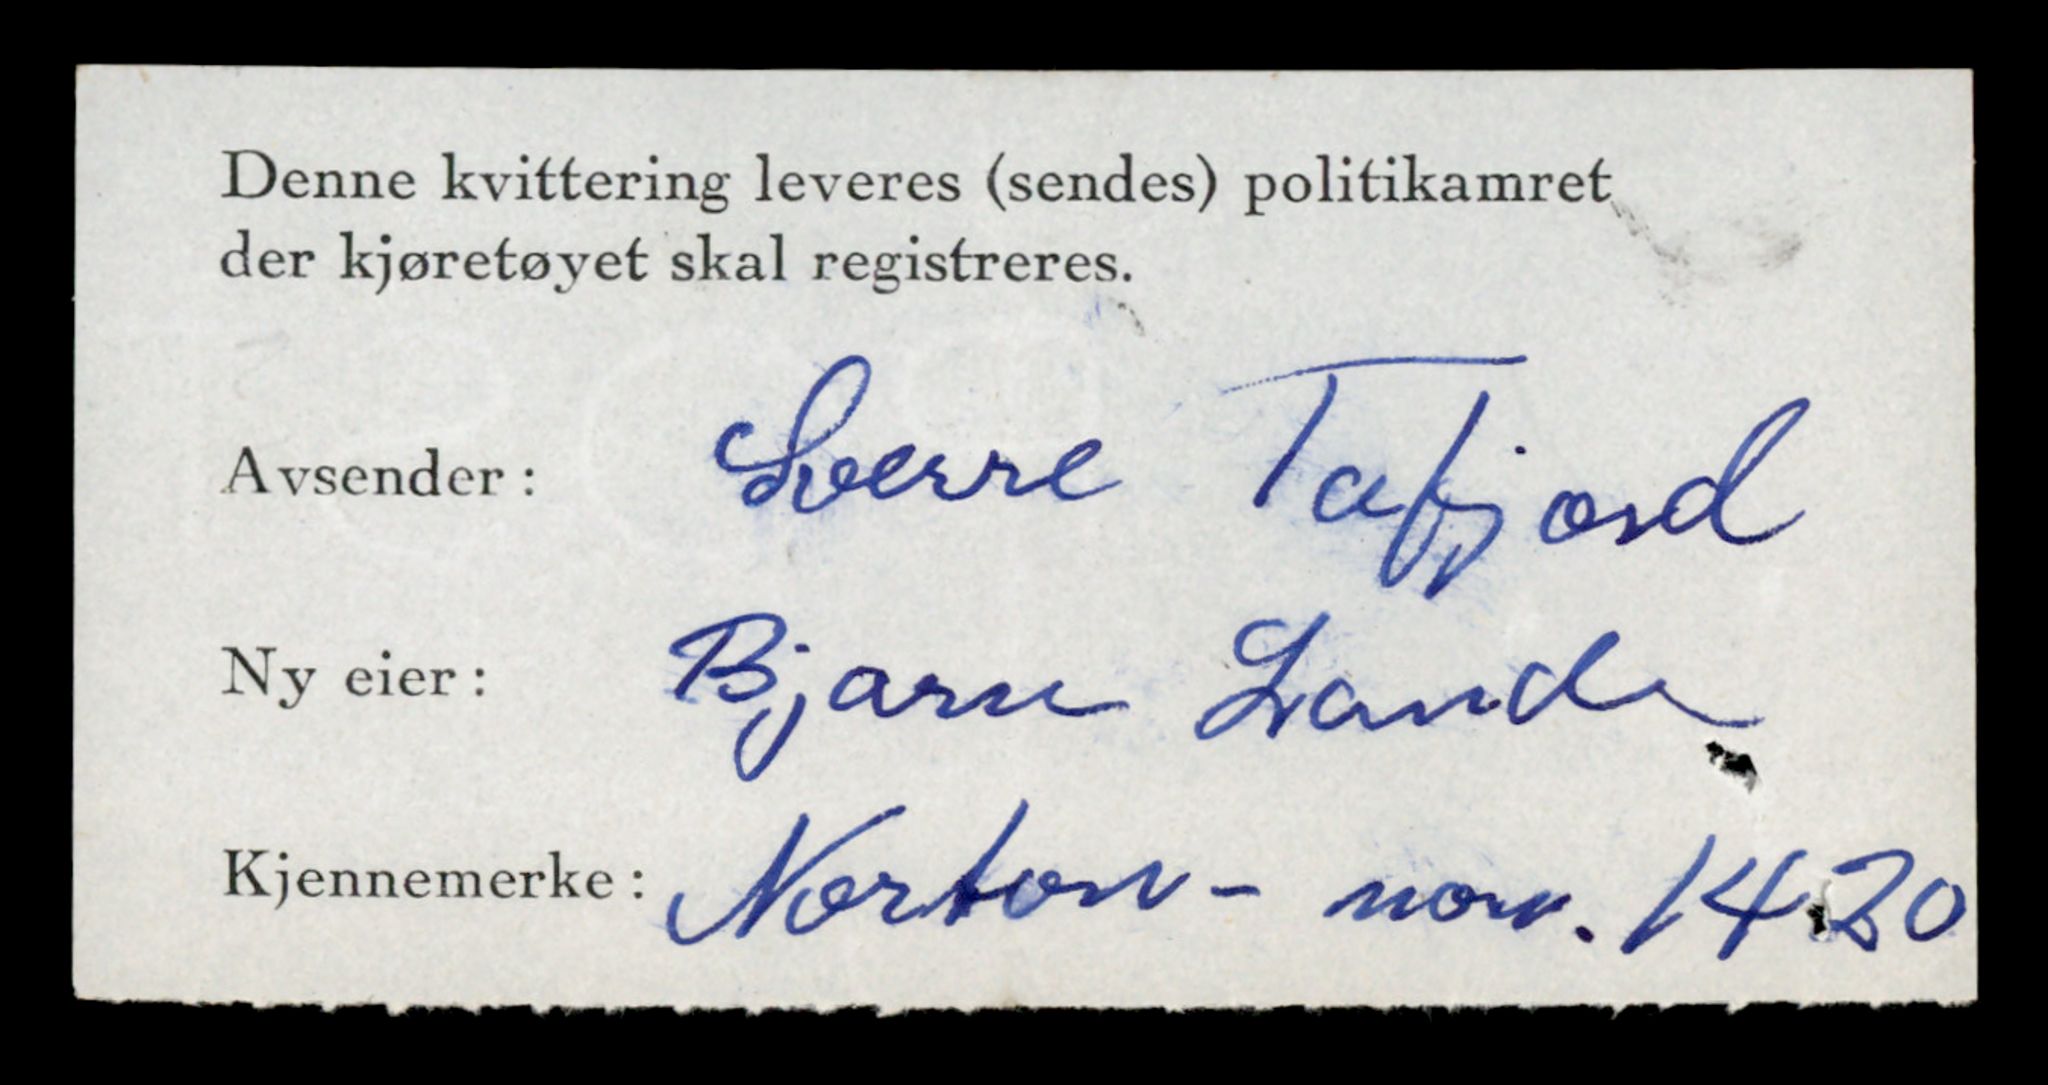 Denne kvittering leveres (sendes) politikamret
der kjøretøyet skal registreres.
Avsender: Sverre Tafjord
Ny eier: Bjarne Lande
Kjennemerke: Norton - 1420